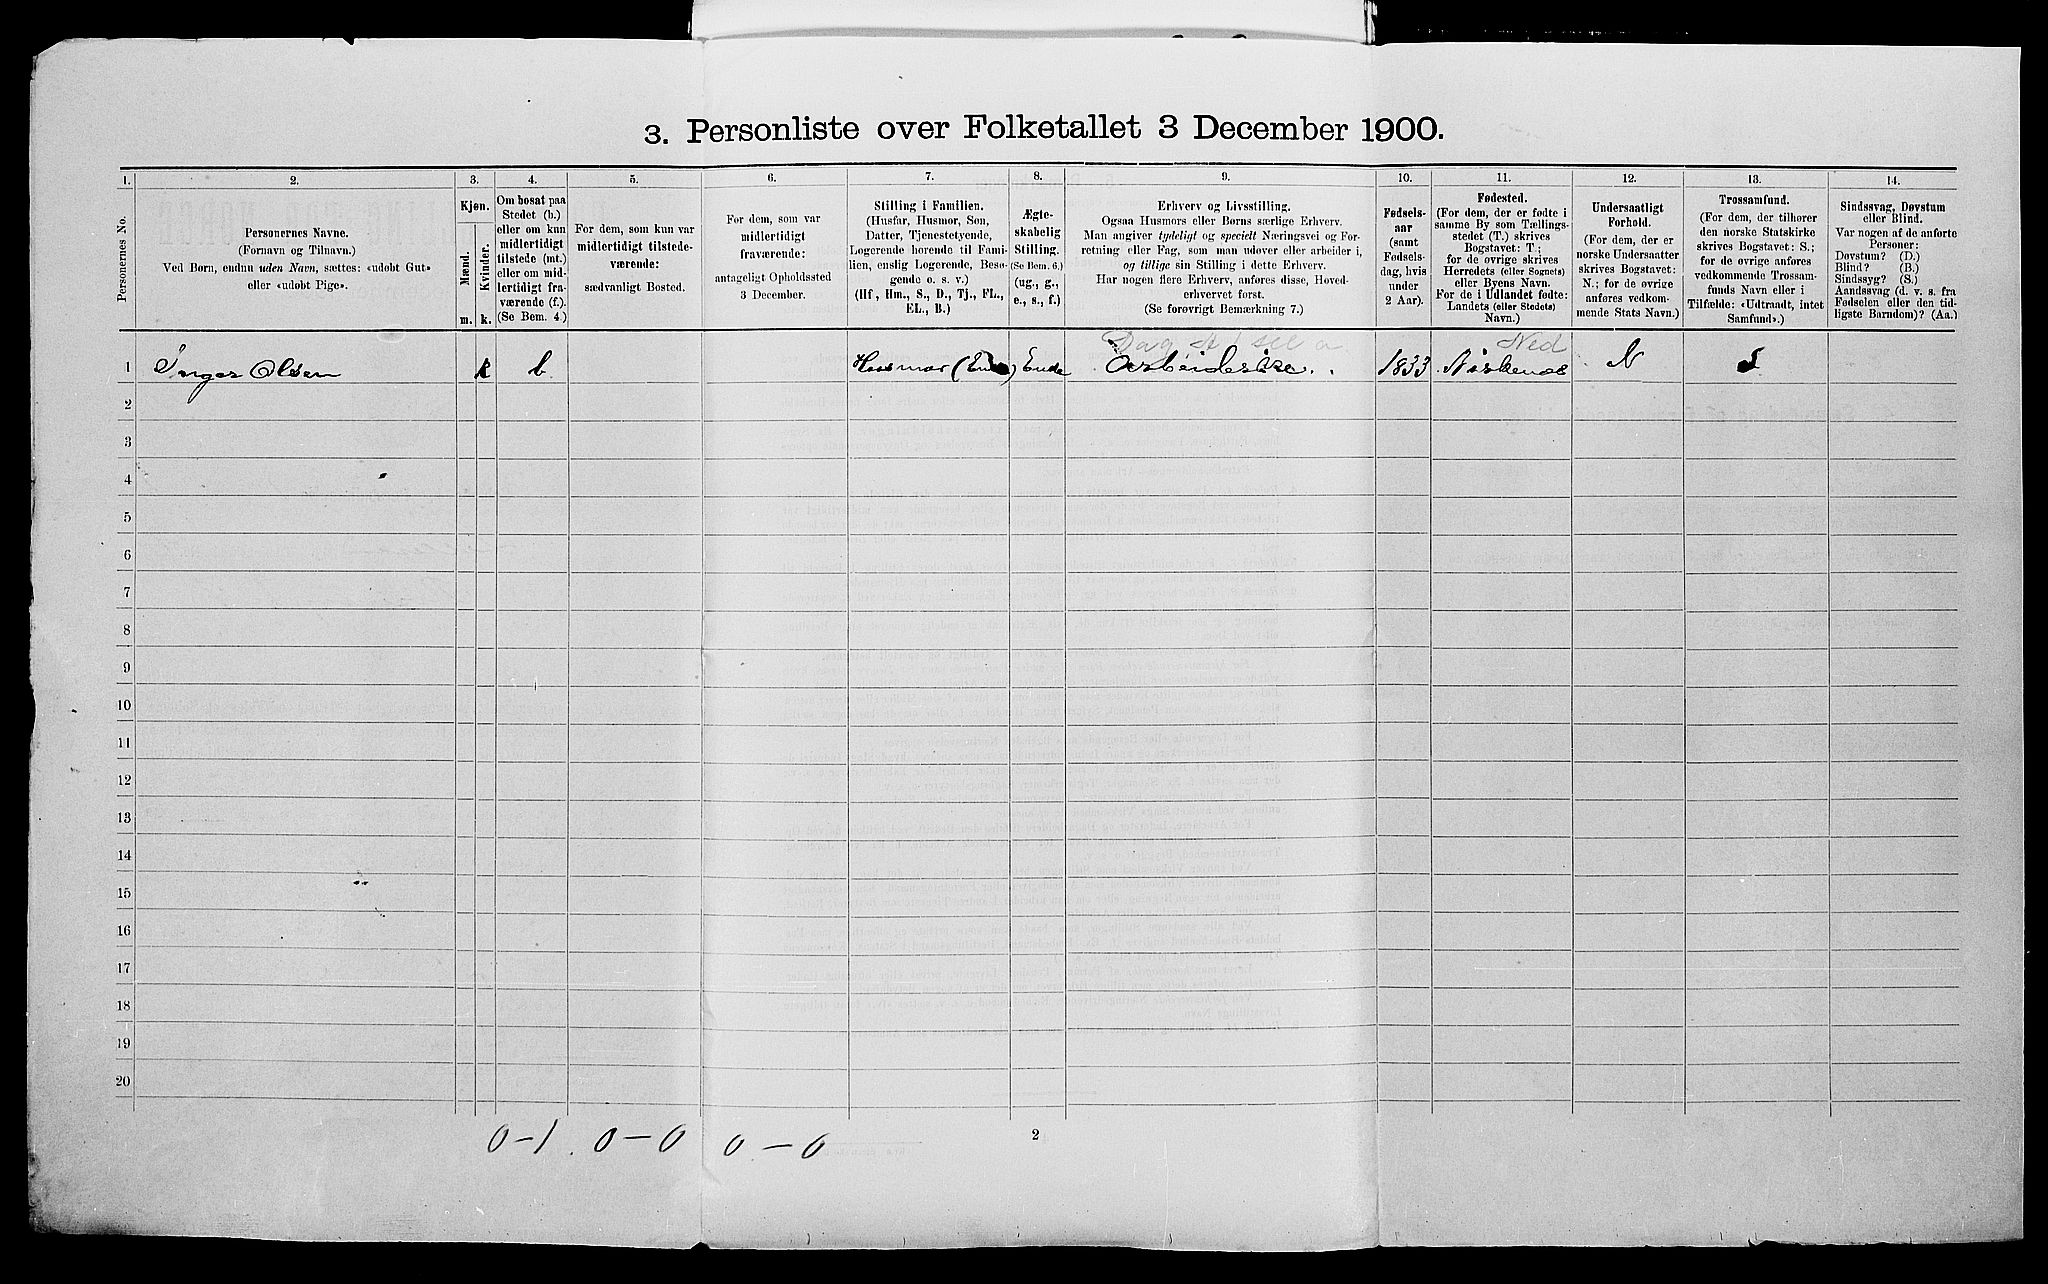 3. Personliste over Folketallet 3 December 1900.
1.
2.
3.
4.
5.
6.
7.
8.
9.
10.
11.
12.
13.
14.
Personernes No.
Personernes Navne.
(Fornavn og Tilnavn.)
Ved Børn, endnu uden Navn, sættes: «udøbt Gut»
eller «udøbt Pige».
Kjøn.
Mænd.
Kvinder.
m.
k.
Om bosat paa
Stedet (b.)
eller om kun
midlertidigt
tilstede (mt.)
eller om mid-
lertidigt fra-
værende (f.).
(Se Bem. 4.)
For dem, som kun var
midlertidigt tilstede-
værende:
sædvanligt Bosted.
For dem, som var
midlertidigt
fraværende:
antageligt Opholdssted
3 December.
Stilling i Familien.
(Husfar, Husmor, Søn,
Datter, Tjenestetyende,
Logerende hørende til Fami-
lien, enslig Logerende, Besø-
gende o. s. v.)
(Hf., Hm., S., D., Tj., FL.,
EL., B.)
Ægte-
skabelig
Stilling.
(Se Bem. 6.)
(ug., g.,
e., s., f.)
Erhverv og Livsstilling.
Ogsaa Husmors eller Børns særlige Erhverv.
Man angiver tydeligt og specielt Næringsvei og For-
retning eller Fag, som man udøver eller arbeider i,
og tillige sin Stilling i dette Erhverv.
Har nogen flere Erhverv, anføres disse, Hoved-
erhvervet først.
(Se forøvrigt Bemærkning 7.)
Fødsels-
aar
(samt
Fødsels-
dag, hvis
under
2 Aar).
Fødested.
(For dem, der er fødte i
samme By som Tællings-
stedet (T.) skrives
Bogstavet: T.;
for de øvrige skrives
Herredets (eller Sognets)
eller Byens Navn.
For de i Udlandet fødte:
Landets (eller Stedets)
Navn.)
Undersaatligt
Forhold.
(For dem, der er
norske Undersaatter
skrives Bogstavet:
N.; for de øvrige
anføres vedkom-
mende Stats Navn.)
Trossamfund.
(For dem, der tilhører
den norske Statskirke
skrives Bogstavet: S.;
for de øvrige anføres
vedkommende Trossam-
funds Navn eller i
Tilfælde: «Udtraadt, intet
Samfund».)
Sindssvag, Døvstum
eller Blind.
Var nogen af de anførte
Personer:
Døvstum? (D.)
Blind? (B.)
Sindssyg? (S.)
Aandssvag (d. v. s. fra
Fødselen eller den tid-
ligste Barndom)? (Aa.)
Ned
1 Inger Olsen k b Husmor (Enke) Enke 1833 N S
2
3
4
5
6
7
8
9
10
11
12
13
14
15
16
17
18
19
20
0-1. 0-0 0-0
2